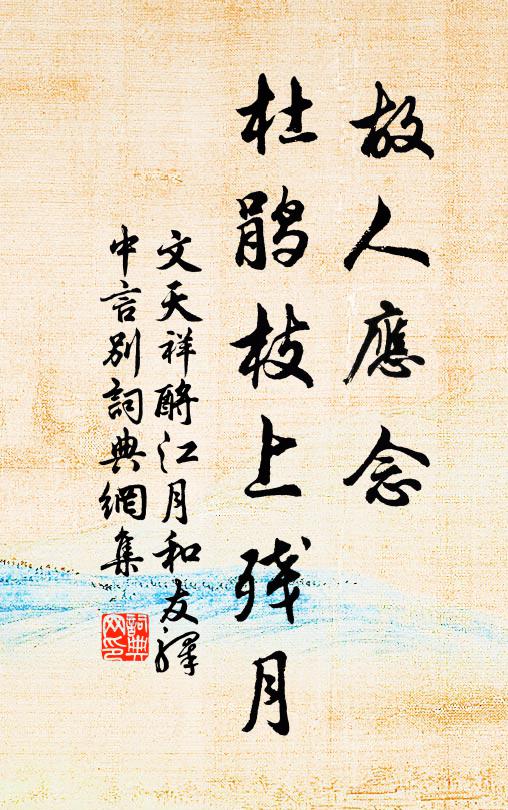 故人應念
杜鹃枝上残月
文天祥酹江月和友驛
中言別詞典網集
詞典
网印